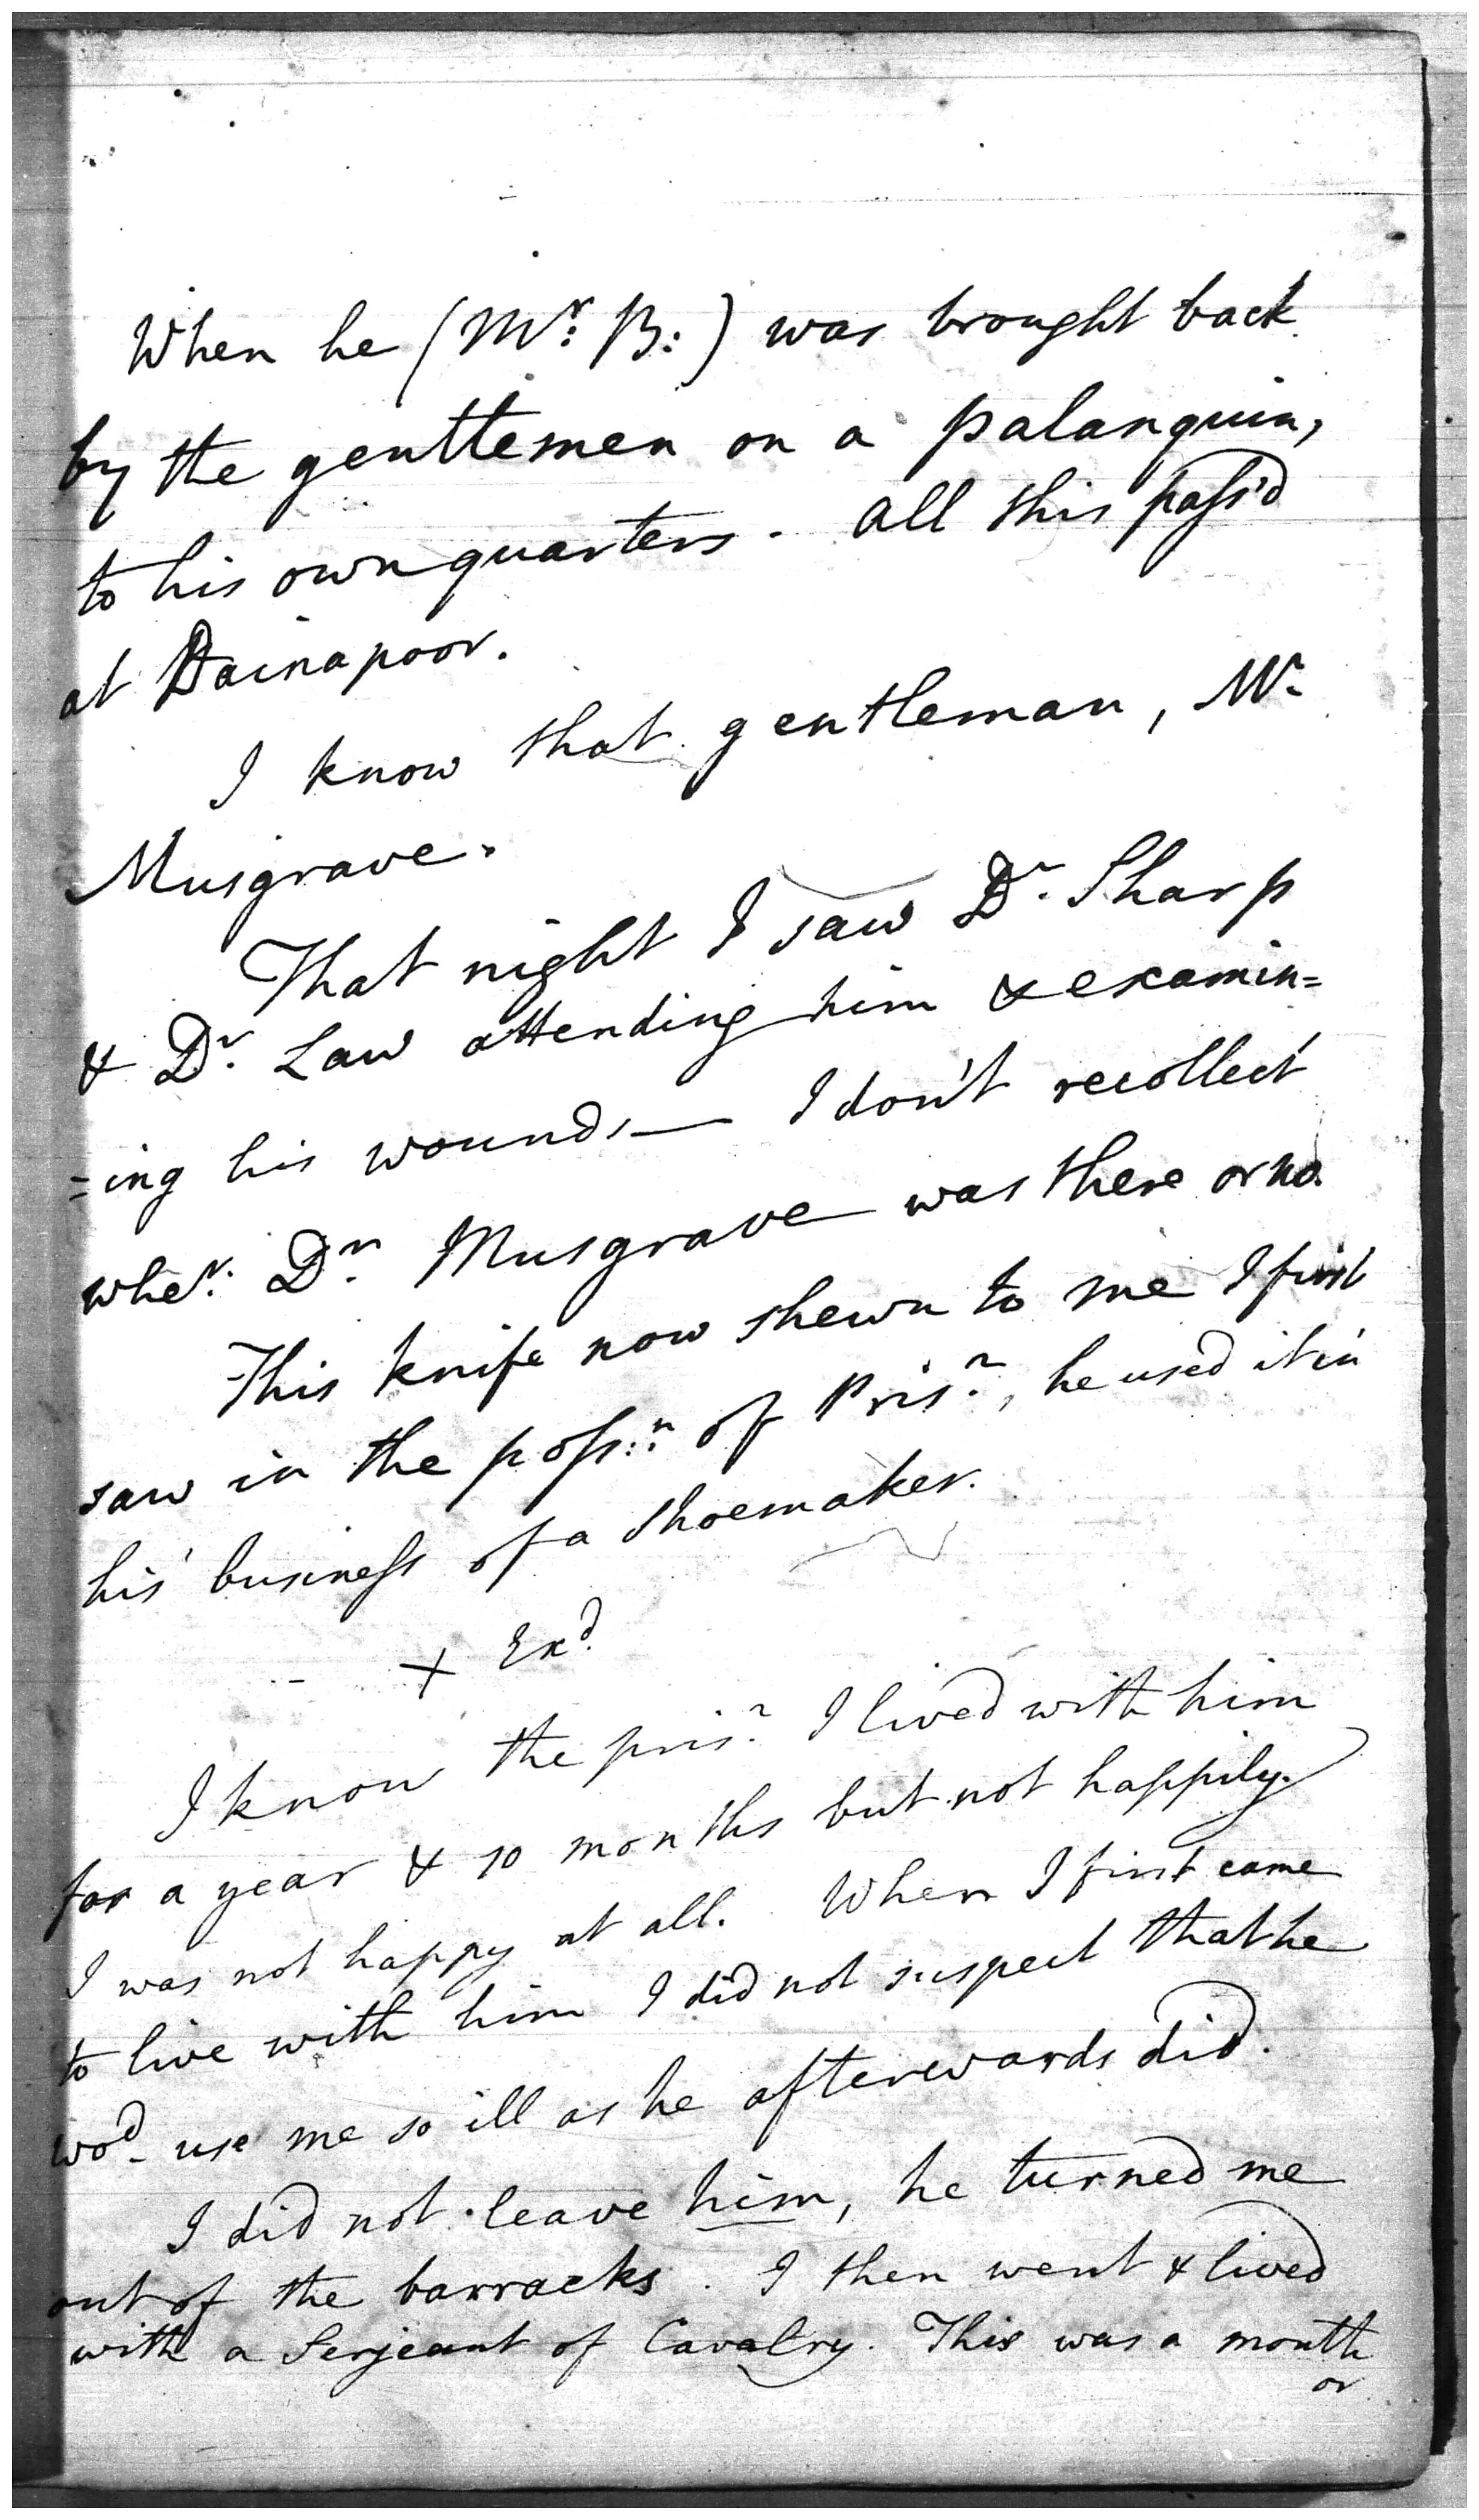 When he (Mr: B:) was brought back
by the gentlemen on a palanquin,
to his own quarters. all this pass'd
at Dainapoor.
I know that gentleman, Mr.
Musgrave.
That night I saw Dr. Sharp
& Dr. Law attending him & examin=
=ing his wounds— I don't recollect
wher. Dr. Musgrave was there or no.
This knife now shewn to me I first
saw in the possn. of Prisr., he used it in
his business of a Shoemaker.
+ Exd.
I know the prisr. I lived with him
for a year & 10 months but not happily.
I was not happy at all. When I first came
to live with him I did not suspect that he
wod. use me so ill as he afterwards did.
I did not leave him, he turned me
out of the barracks. I then went & lived
with a Serjeant of Cavalry. This was a month
or